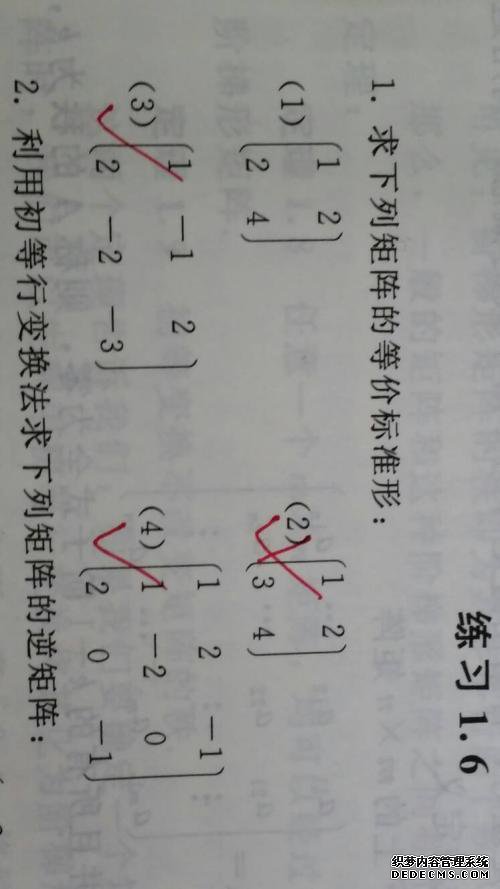 练习 1.6
1. 求下列矩阵的等价标准形:
(1) 1 2
2 4
(2) 1 2
3 4
(3) 1 -1 2
2 -2 -3
(4) 1 2 -1
1 -2 0
2 0 -1
2. 利用初等行变换法求下列矩阵的逆矩阵:
织梦内容管理系统
DEDECMS.COM